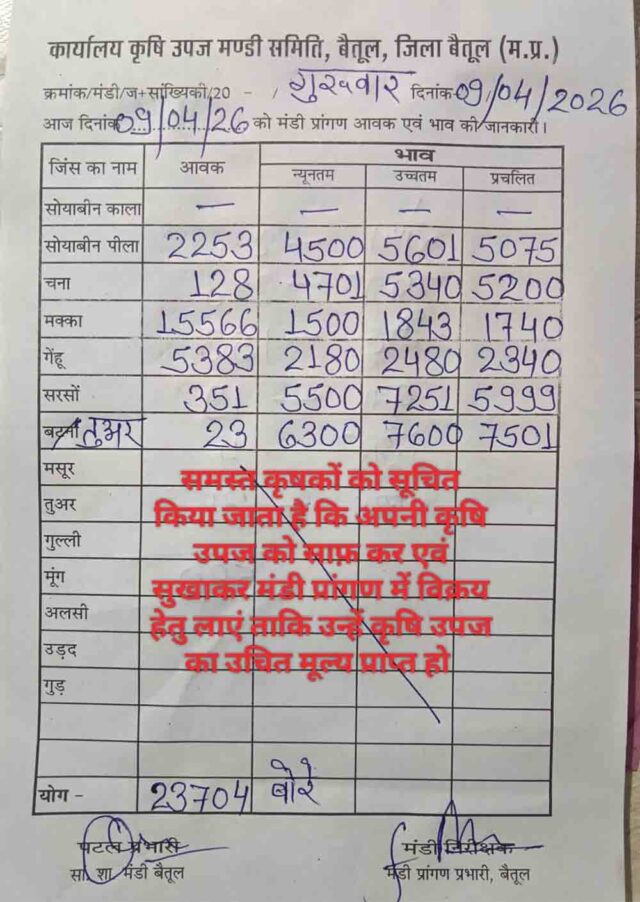 कार्यालय कृषि उपज मण्डी समिति, बैतूल, जिला बैतूल (म.प्र.)
क्रमांक/मंडी/ज+सांख्यिकी/20 - / गुरुवार दिनांक 09/04/2026
आज दिनांक 09/04/26 को मंडी प्रांगण आवक एवं भाव की जानकारी।
जिंस का नाम आवक भाव
न्यूनतम उच्चतम प्रचलित
सोयाबीन काला — — — —
सोयाबीन पीला 2253 4500 5601 5075
चना 128 4701 5340 5200
मक्का 15566 1500 1843 1740
गेंहू 5383 2180 2480 2340
सरसों 351 5500 7251 5999
बटना तुअर 23 6300 7600 7501
मसूर
तुअर
गुल्ली
मूंग
अलसी
उड़द
गुड़
समस्त कृषकों को सूचित
किया जाता है कि अपनी कृषि
उपज को साफ़ कर एवं
सुखाकर मंडी प्रांगण में विक्रय
हेतु लाएं ताकि उन्हें कृषि उपज
का उचित मूल्य प्राप्त हो
योग - 23704 बोरे
प्रभारी मंडी निरीक्षक
सां. शा. मंडी बैतूल मंडी प्रांगण प्रभारी, बैतूल